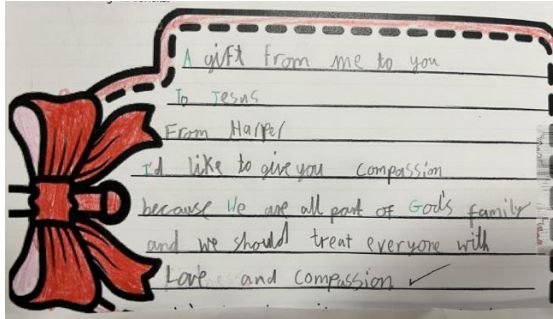 A gift from me to you
To Jesus
From Harper
I'd like to give you compassion
because We are all part of God's family
and we should treat everyone with
Love and compassion